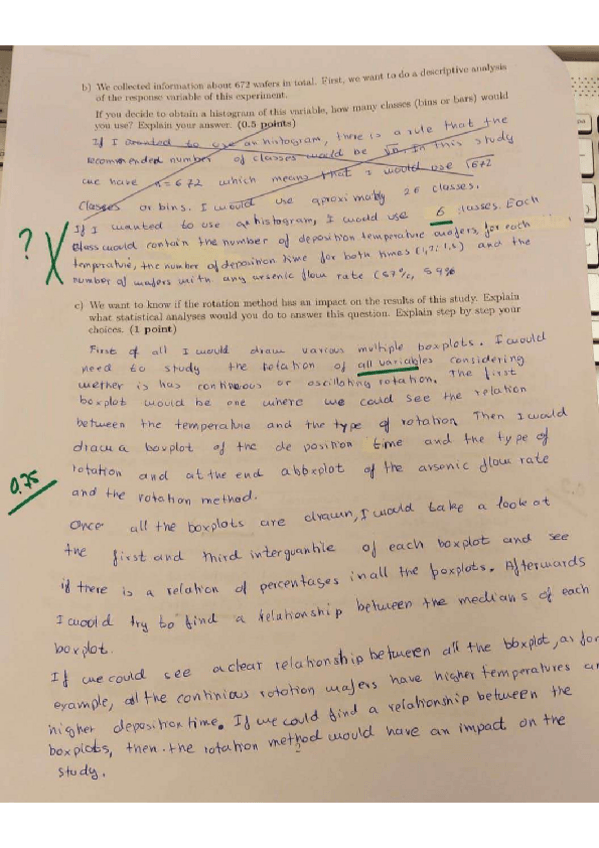 b) We collected information about 672 wafers in total. First, we want to do a descriptive analysis
of the response variable of this experiment.
If you decide to obtain a histogram of this variable, how many classes (bins or bars) would
you use? Explain your answer. (0.5 points)
If I wanted to use an histogram, there is a rule that the
recommended number of classes would be √n. In this study
we have n=672 which means that I would use √672
classes or bins. I would use aproximatly 26 classes.
If I wanted to use a histogram, I would use 6 classes. Each
? class would contain the number of deposition temperature wafers, for each
temperature, the number of deposition time for both times and the
number of wafers with any arsenic flow rate (57%,
c) We want to know if the rotation method has an impact on the results of this study. Explain
what statistical analyses would you do to answer this question. Explain step by step your
choices. (1 point)
First of all I would draw various multiple boxplots. I would
need to study the rotation of all variables considering
wether is has continuous or oscillating rotation. The first
boxplot would be one where we could see the relation
between the temperature and the type of rotation. Then I would
draw a boxplot of the deposition time and the type of
rotation and at the end a boxplot of the arsenic flow rate
0.75
and the rotation method.
Once all the boxplots are drawn, I would take a look at
the first and third interquantile of each boxplot and see
if there is a relation of percentages in all the boxplots. Afterwards
I would try to find a relationship between the medians of each
boxplot.
If we could see a clear relationship between all the boxplot, as for
example, all the continious rotation wafers have higher temperatures
higher deposition time. If we could find a relationship between the
boxplots, then the rotation method would have an impact on the
study.